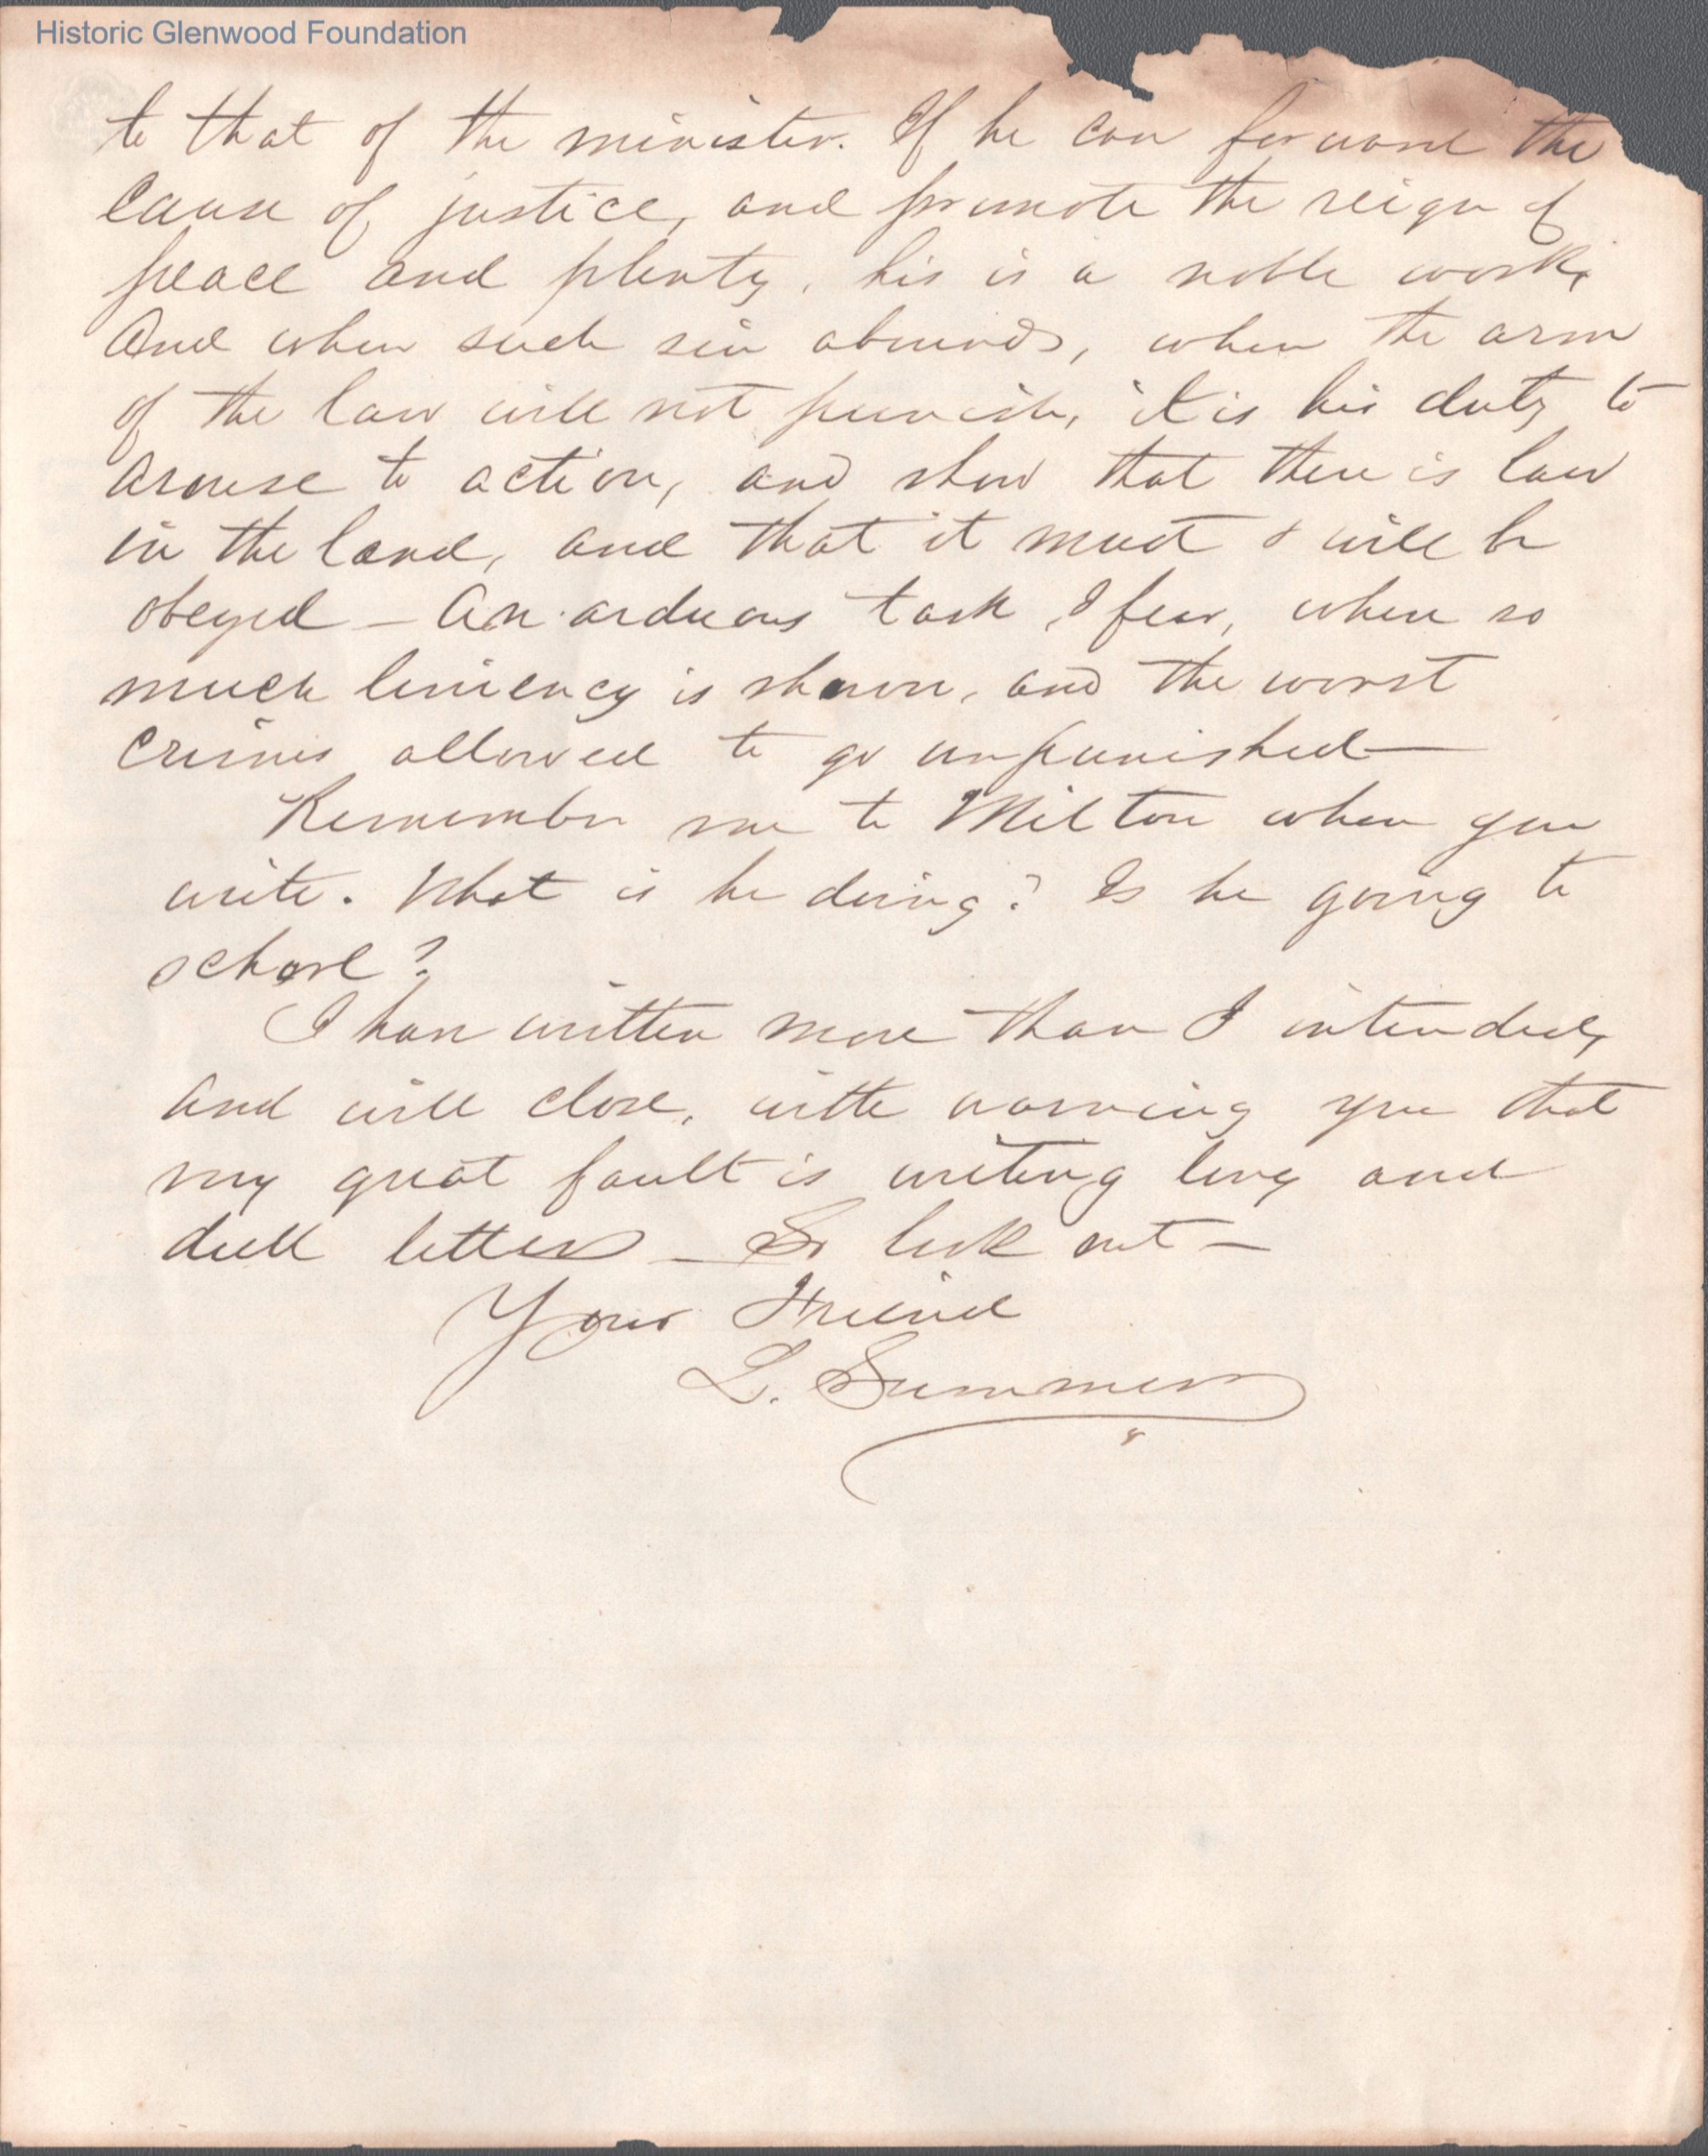 Historic Glenwood Foundation
to that of the minister. If he can forward the
cause of justice, and promote the reign of
peace and plenty, his is a noble work,
And when such sin abounds, when the arm
of the law will not punish, it is his duty to
arouse to action, and show that there is law
in the land, and that it must & will be
obeyed – An arduous task, I fear, when so
much leniency is shown, and the worst
crimes allowed to go unpunished —
Remember me to Milton when you
write. What is he doing? Is he going to
school?
I have written more than I intended,
and will close, with warning you that
my great fault is writing long and
dull letters – So look out –
Your Friend
L. Summers